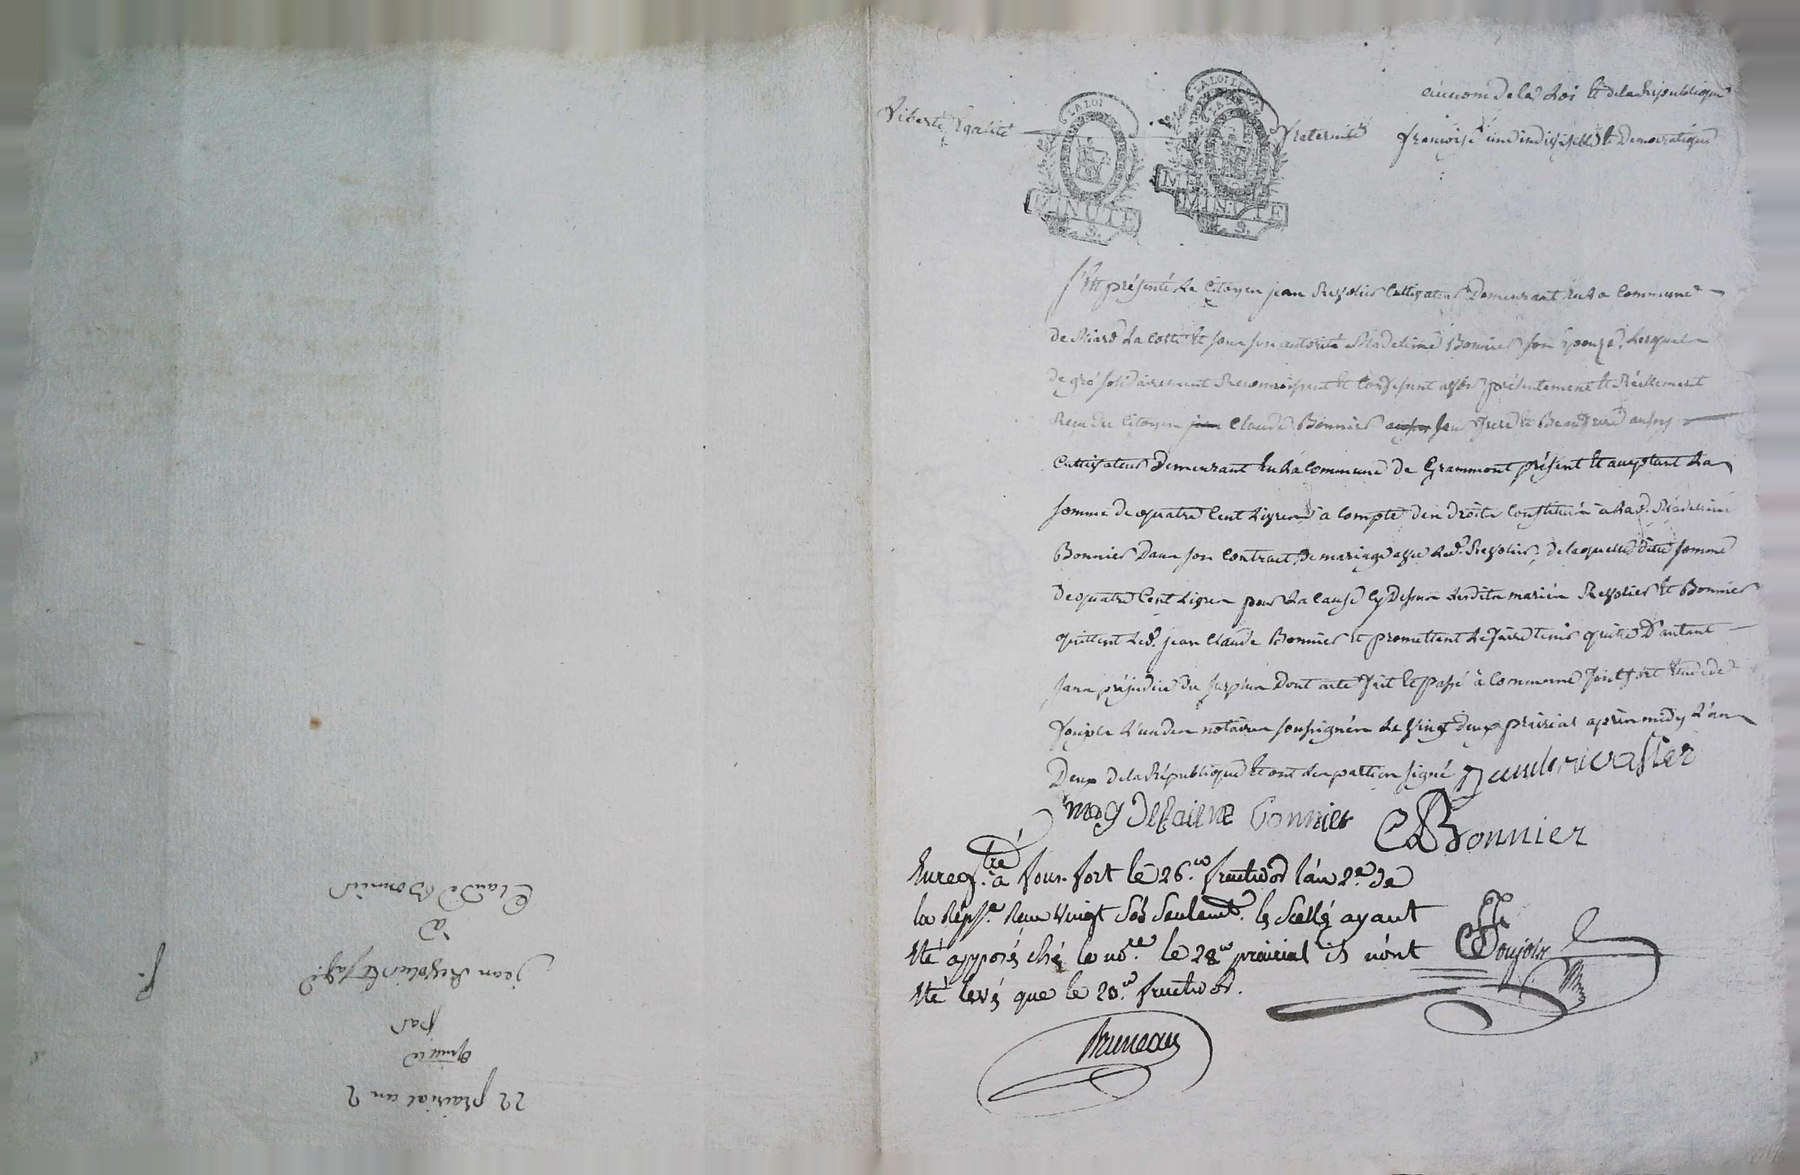 au nom de la Loi et de la République
Liberté Egalité fraternité françoise une indivisible et Democratique
LA LOI
MINUTE
LA LOI
MINUTE
S'Est présenté Le Citoyen jean Revolier Cultivateur Demeurant En La Commune
de La Coste Et sous son autorité Madeleine Bonnier son Epouze, Lesquels
de gré solidairement Reconnoissent Et Confessent avoir présentement Et Réellement
Reçu du Citoyen jean Claude Bonnier leur frere Et Beaufrere aussy
Cultivateur Demeurant En La Commune de Grammont présent Et acceptant La
somme de quatre Cent Livres a Compte des Droits Constitués a Lad. Madeleine
Bonnier Dans son Contract De mariage avec Led. Revolier, De laquelle ditte somme
De quatre Cent Livres pour La Cause Cy Dessus Lesdits mariés Revolier Et Bonnier
quittent Led. jean Claude Bonnier Et promettent Le faire tenir quitte D'autant
sans préjudice du surplus Dont acte fait Et Passé à Commune fontfort Etude de
foujols L'un des notaires soussignés Le vingt Deux prairial après midy L'an
Deux de la République Et ont Les parties signé
magdelaine bonnier C Bonnier
Enreg.tré a fonfort le 26.e fructidor l'an 2.e de
la Rép.e Reçu vingt sols seulemt. le scellé ayant
été apposés ché le no.re le 28e prairial ils n'ont foujols
été levés que le 20.e fructidor.
Bruneau
22 prairial an 2
quitté
par
jean Revolier Et sa f.e
à
Claude Bonnier